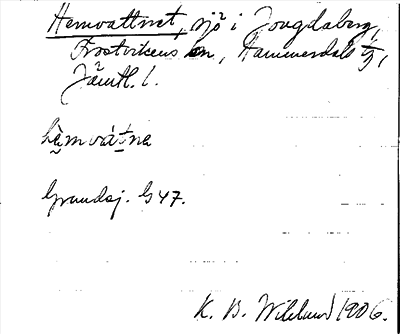 Hemvattnet, sjö i Jougdaberg,
Frostvikens sn, Hammerdals tg,
Jämtl. l.
hèmvátne
Grundsj. G 47.
K. B. Wiklund 1906.